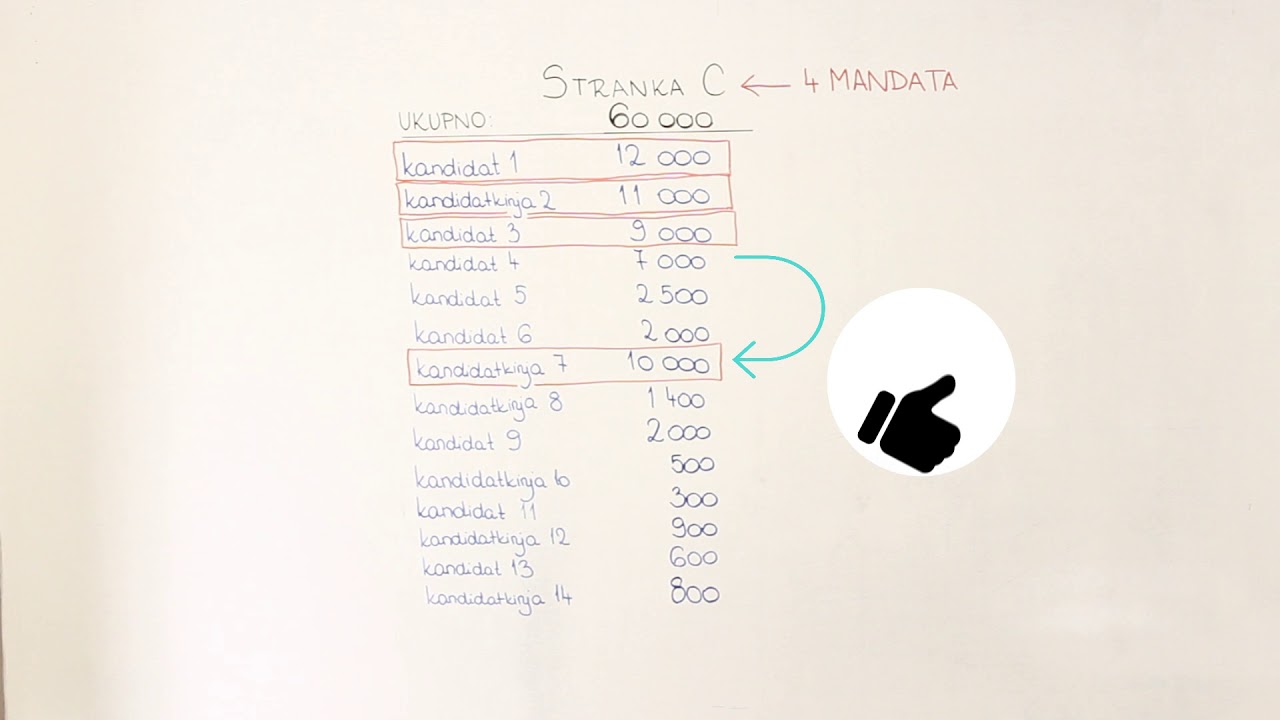 STRANKA C ← 4 MANDATA
UKUPNO: 60 000
kandidat 1 12 000
kandidatkinja 2 11 000
kandidat 3 9 000
kandidat 4 7 000
kandidat 5 2 500
kandidat 6 2 000
kandidatkinja 7 10 000
kandidatkinja 8 1 400
kandidat 9 2 000
kandidatkinja 10 500
kandidat 11 300
kandidatkinja 12 900
kandidat 13 600
kandidatkinja 14 800